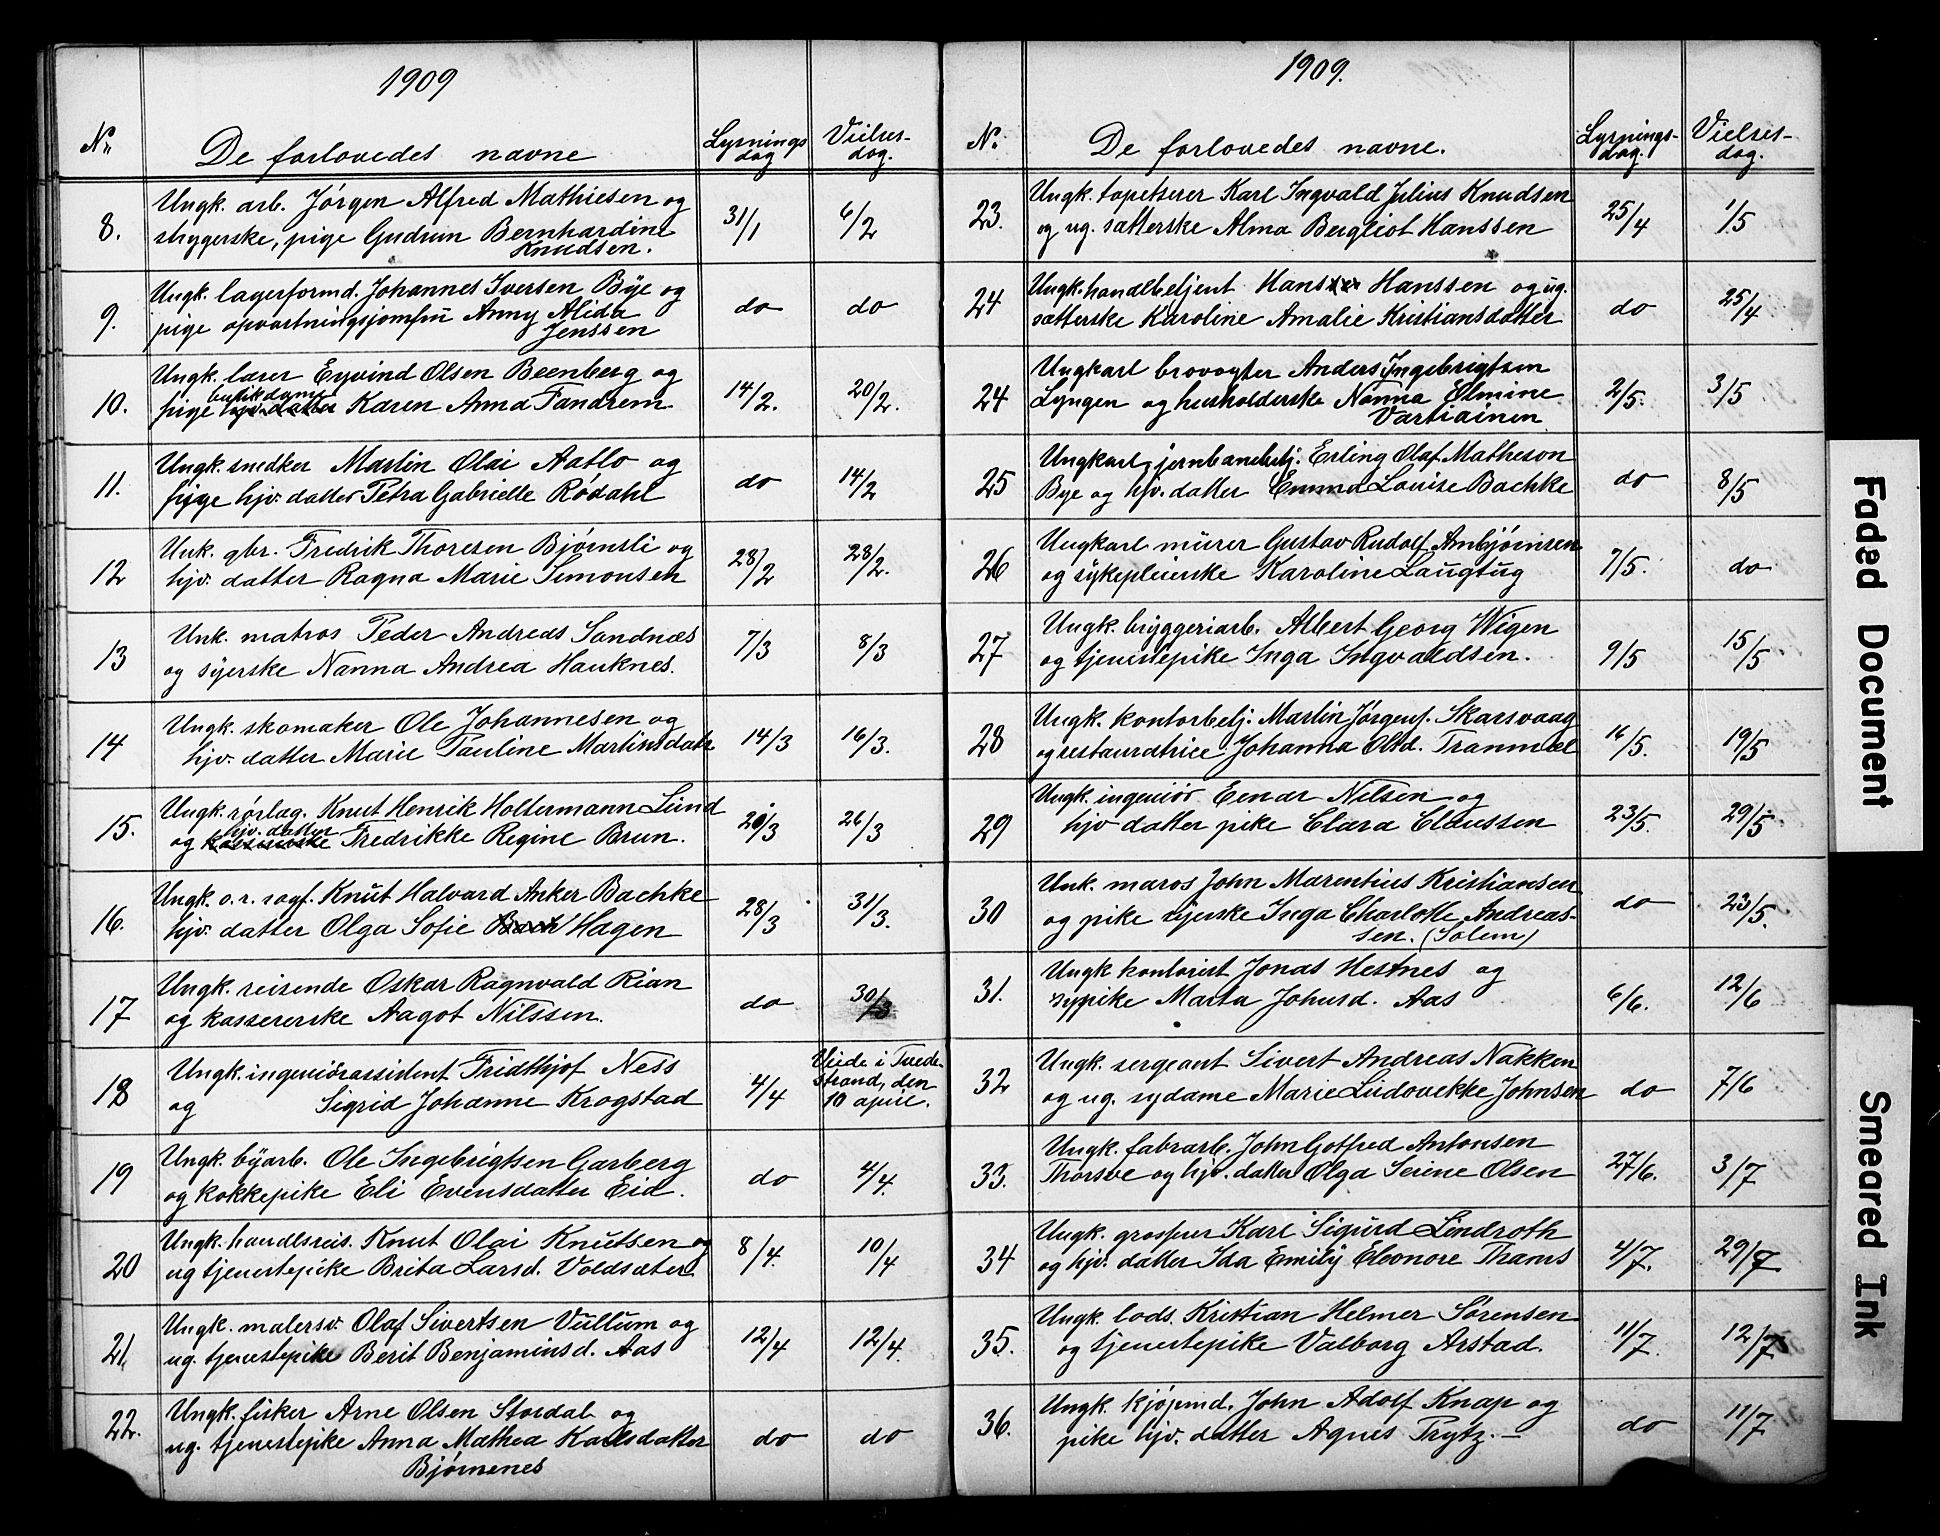 1909
Nr. De forlovedes navne Lysnings dag Vielses-dag.
8. Ungk. arb. Jørgen Alfred Mathiesen og 31/1 6/2
strygerske, pige Gudrun Bernhardine
Knudsen.
9. Ungk. lagerformd. Johannes Iversen Bye og do do
pige opvartningsjomfru Anny Alida
Jenssen
10. Ungk. lærer Eyvind Olsen Beenberg og 14/2. 20/2.
butikdame
pige hjv. datter Karen Anna Tandrem
11. Ungk. snedker Martin Olai Aatlo og do 14/2
pige hjv. datter Petra Gabrielle Rødahl
12 Unk. gbr. Fredrik Thoresen Bjørnsli og 28/2 28/2.
hjv. datter Ragna Marie Simonsen
13 Unk. matros Peder Andreas Sandnæs 7/3 8/3
og syerske Nanna Andrea Hauknes.
14 Ungk. skomaker Ole Johannesen og 14/3 16/3.
hjv. datter Marie Pauline Martinsdatr
15. Ungk. rørlæg. Knut Henrik Holtermann Lund 20/3 26/3
hjv. datter
og Fredrikke Regine Brun.
16. Ungk. o.r. sagf. Knut Halvard Anker Bachke 28/3 31/3.
hjv. datter Olga Sofie Bach Hagen
17 Ungk. reisende Oskar Ragnvald Rian do 30/3
og kassererske Aagot Nilssen.
18 Ungk. ingeniørassistent Fridthjof Ness 4/4 Viede i Tvede-
strand, den
og Sigrid Johanne Krogstad 10 april.
19 Ungk. byarb. Ole Ingebrigtsen Garberg do 4/4.
og kokkepike Eli Evensdatter Eid.
20 Ungk. handlsreis. Knut Olai Knutsen og 8/4. 10/4
ug tjenestepike Brita Larsd. Voldsæter
21. Ungk. malersv. Olaf Sivertsen Vullum og 12/4 12/4.
ug. tjenestepike Berit Benjaminsd. Aas
22. Ungk. fisker Arne Olsen Stordal og do do
ug. tjenestepike Anna Mathea Karlsdatter
Bjørnenes
1909.
Nr. De forlovedes navne. Lysnings-dag. Vielses-dag.
23. Ungk. tapetserer Karl Ingvald Julius Knudsen 25/4 1/5
og ug. sætterske Alma Bergliot Hanssen
24 Ungk. handlbetjent Hans Hanssen og ug. do 25/4
sætterske Karoline Amalie Kristiansdatter
24 Ungkarl brovogter Anders Ingebrigtsen 2/5. 3/5
Lyngen og husholderske Nanna Elmine
Vartiainen
25 Ungkarl jernbanebetj. Erling Olaf Matheson do 8/5
Bye og hjv. datter Emma Louise Bachke
26 Ungkarl murer Gustav Rudolf Arnbjørnsen 7/5. do
og sykepleierske Karoline Laugtug
27 Ungk. bryggeriarb. Albert Georg Wigen 9/5 15/5
og tjenestepike Inga Ingvaldsen.
28 Ungk. kontorbetj. Martin Jørgens. Skarsvaag 16/5. 19/5
og restauratrice Johanna Olsd. Tranmæl
29 Ungk. ingeniør Eenar Nilsen og 23/5. 29/5
hjv datter pike Clara Claussen
30 Unk. maros John Marentius Kristiansen do 23/5.
og pike syerske Inga Charlotte Andreas-
sen. (Solem)
31. Ungk kontorist Jonas Hestnes og 6/6. 12/6
sypike Marta Johnsd. Aas
32 Ungk. sergeant Sivert Andreas Nakken do 7/6
og ug. sydame Marie Ludovekke Johnsen
33. Ungk. fabrarb. John Gotfred Antonsen 27/6. 3/7
Thorsve og hjv. datter Olga Serine Olsen
34 Ungk. grosserer Karl Sigurd Lindroth 4/7. 29/7
og hjv. datter Ida Emily Eleonore Thams
35. Ungk. lods. Kristian Helmer Sørensen 11/7. 12/7
og tjenestepike Valborg Arstad.
36. Ungk. kjøpmd. John Adolf Knap og do 11/7
pike hjv. datter Agnes Trytz.—
Faded Document
Smeared Ink